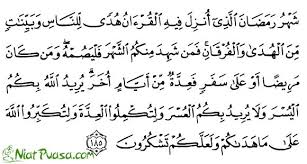 شَهْرُ رَمَضَانَ الَّذِيٓ أُنْزِلَ فِيهِ الْقُرْءَانُ هُدًى لِلنَّاسِ وَبَيِّنَٰتٍ
مِنَ الْهُدَىٰ وَالْفُرْقَانِ فَمَنْ شَهِدَ مِنْكُمُ الشَّهْرَ فَلْيَصُمْهُ وَمَنْ كَانَ
مَرِيضًا أَوْ عَلَىٰ سَفَرٍ فَعِدَّةٌ مِنْ أَيَّامٍ أُخَرَ يُرِيدُ اللَّهُ بِكُمُ
الْيُسْرَ وَلَا يُرِيدُ بِكُمُ الْعُسْرَ وَلِتُكْمِلُوا الْعِدَّةَ وَلِتُكَبِّرُوا اللَّهَ
عَلَىٰ مَا هَدَىٰكُمْ وَلَعَلَّكُمْ تَشْكُرُونَ ١٨٥
NiatPuasa.com